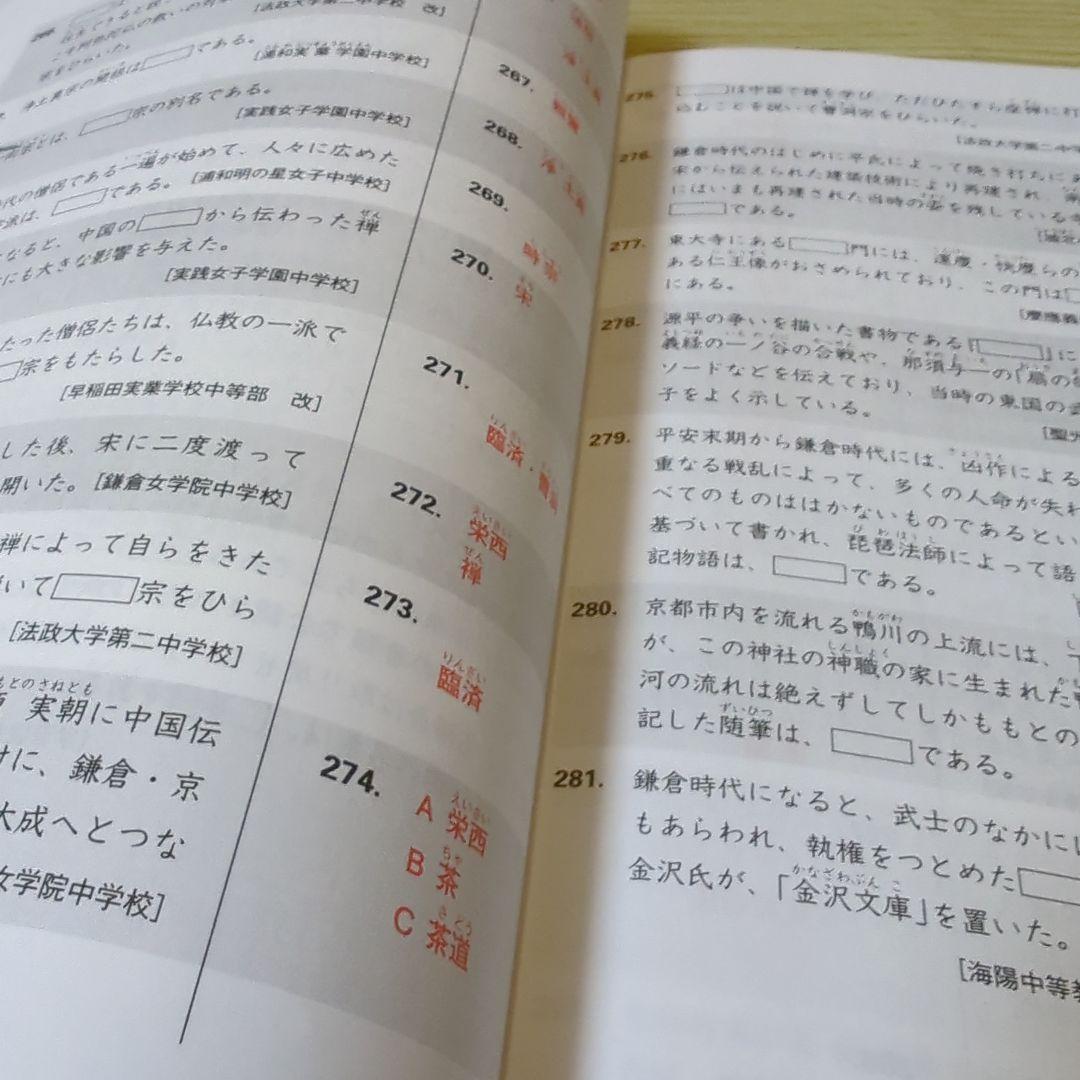 [法政大学第二中学校 改]
である。
[浦和実業学園中学校]
宗の別名である。
[実践女子学園中学校]
代の僧侶である一遍が始めて、人々に広めた
派は、□である。[浦和明の星女子中学校]
なると、中国の□から伝わった禅
にも大きな影響を与えた。
[実践女子学園中学校]
たった僧侶たちは、仏教の一派で
□宗をもたらした。
[早稲田実業学校中等部 改]
した後、宋に二度渡って
開いた。[鎌倉女学院中学校]
禅によって自らをきた
いて□宗をひら
[法政大学第二中学校]
もとのさねとも
実朝に中国伝
けに、鎌倉・京
大成へとつな
女学院中学校]
267.
268.
269.
時宗
270.
宋
271.
臨済・
272.
栄西
禅
273.
臨済
274.
A 栄西
B 茶
C 茶道
275.
□は中国で禅を学び、ただひたすら座禅に打
込むことを説いて曹洞宗をひらいた。
[法政大学第二中学
276.
鎌倉時代のはじめに平氏によって焼き打ちにあ
宋から伝えられた建築技術により再建され、南
にはいまも再建された当時の姿を残している
□である。
277.
東大寺にある□門には、運慶・快慶らの
ある仁王像がおさめられており、この門は
にある。
[慶應義
278.
源平の争いを描いた書物である『□』に
義経の一ノ谷の合戦や、那須与一の「扇の
ソードなどを伝えており、当時の東国の
子をよく示している。
[聖光
279.
平安末期から鎌倉時代には、凶作による
重なる戦乱によって、多くの人命が失われ
べてのものははかないものであるとい
基づいて書かれ、琵琶法師によって語
記物語は、□である。
280.
京都市内を流れる鴨川の上流には、下
が、この神社の神職の家に生まれた鴨
河の流れは絶えずしてしかももとの
記した随筆は、□である。
281.
鎌倉時代になると、武士のなかに
もあらわれ、執権をつとめた□
金沢氏が、「金沢文庫」を置いた。
[海陽中等教